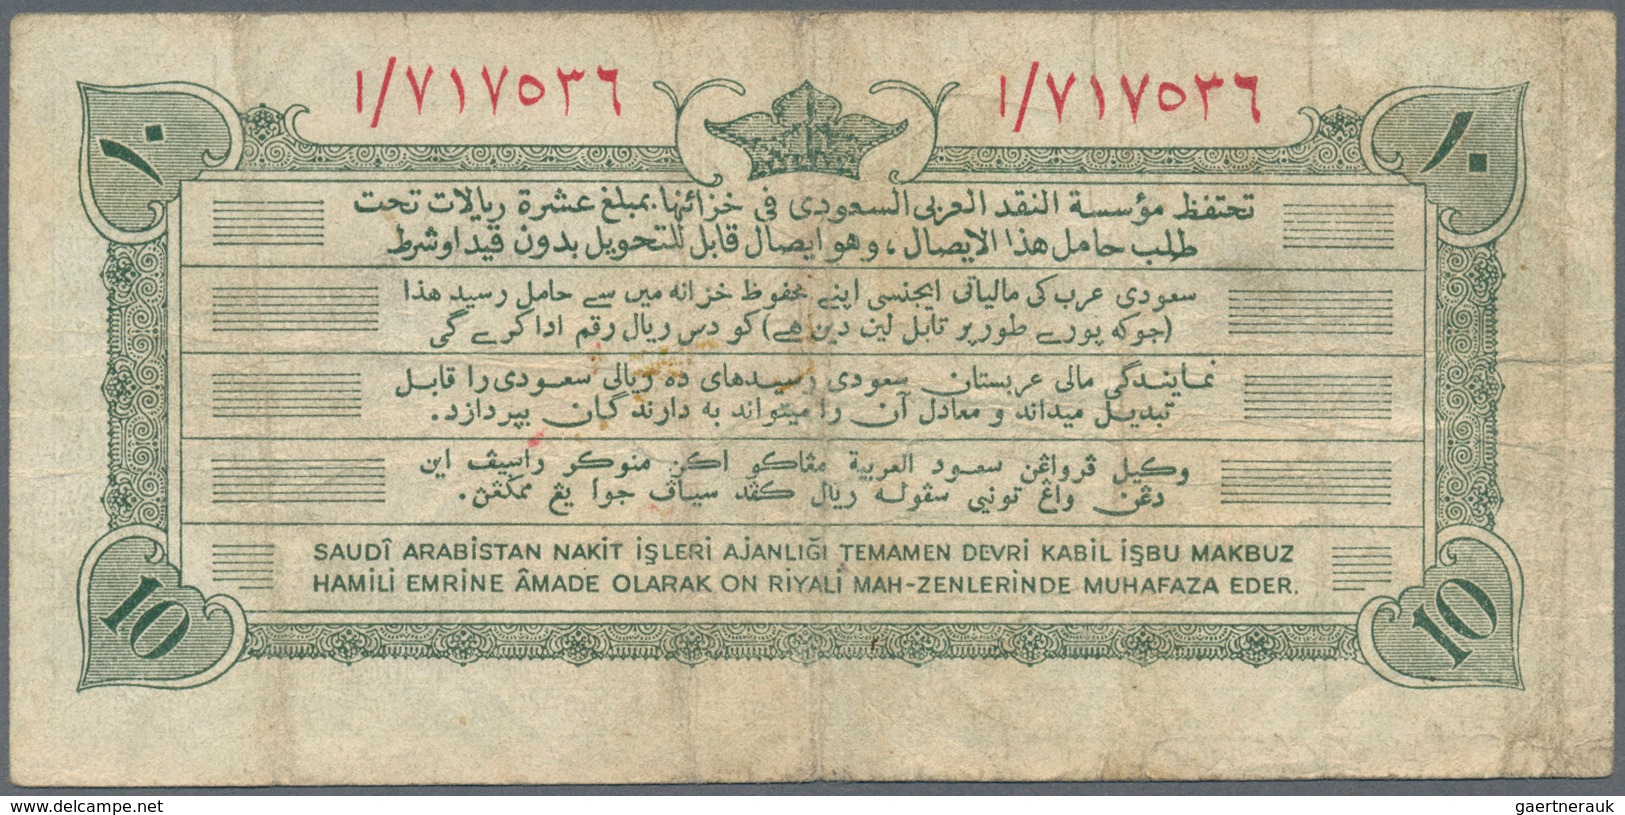 ١/٧١٧٥٣٦ ١/٧١٧٥٣٦
١٠ ١٠
تحتفظ مؤسسة النقد العربى السعودى فى خزائنها بمبلغ عشرة ريالات تحت
طلب حامل هذا الايصال، وهو ايصال قابل للتحويل بدون قيد او شرط
سعودی عرب کی مالیاتی ایجنسی اپنے محفوظ خزانه میں سے حامل رسید هذا
(جوکه پورے طور پر قابل لین دین هے) کو دس ریال رقم ادا کرے گی
نمایندگی مالی عربستان سعودی رسیدهای ده ریالی سعودی را قابل
تبدیل میداند و معادل آن را میتواند به دارندگان بپردازد.
وكيل ڤرواڠن سعود العربية مڠاكو اكن منوكر راسيڤ اين
دڠن واڠ توني سڤوله ريال كڤد سياڤ جوا يڠ ممڬڠن.
SAUDÎ ARABİSTAN NAKİT İŞLERİ AJANLIĞI TEMAMEN DEVRİ KABİL İŞBU MAKBUZ
HAMİLİ EMRİNE ÂMADE OLARAK ON RİYALİ MAH-ZENLERİNDE MUHAFAZA EDER.
10 10
www.delcampe.net
gaertnerauk